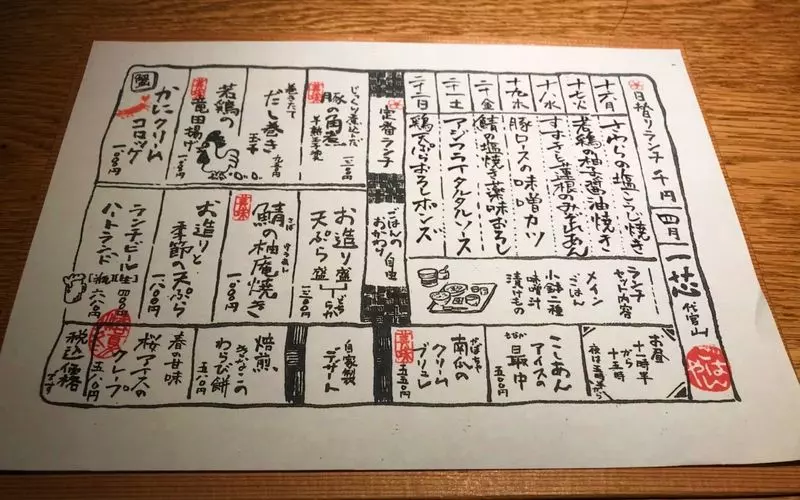 四月
一芯
代官山
ごはんや
日替りランチ 千円
十六月
さわらの塩こうじ焼き
十七火
若鶏の柚子醤油焼き
十八水
すずきと蓮根のみぞれあん
十九木
豚ロスの味噌カツ
二十金
鯖の塩焼き薬味おろし
二十一土
アジフライタルタルソース
二十二日
鶏天ぷらおろしポンズ
ランチセット内容
メイン
ごはん
小鉢二種
味噌汁
漬けもの
お昼
十一時半
から
十五時
夜は五時半から
定番ランチ
ごはんの
おかわり
自由
じっくり煮込んだ
豚の角煮
半熟玉子
巻きたて
だし巻き
玉子
若鶏の
竜田揚げ
蟹
かにクリーム
コロッケ
お造り盛
天ぷら盛
どちらか
鯖の柚庵焼き
さば
ゆうあん
一〇〇〇円
お造りと
季節の天ぷら
ランチビール
生
四〇〇円
ハートランド
瓶
六八〇円
自家製
デザート
こしあん
アイスの
最中
もなか
五〇〇円
かぼちゃ
南瓜の
クリーム
ブリュレ
五五〇円
焙煎
きなこの
わらび餅
五八〇円
春の甘味
桜アイスの
クレープ
五八〇円
税込価格
です